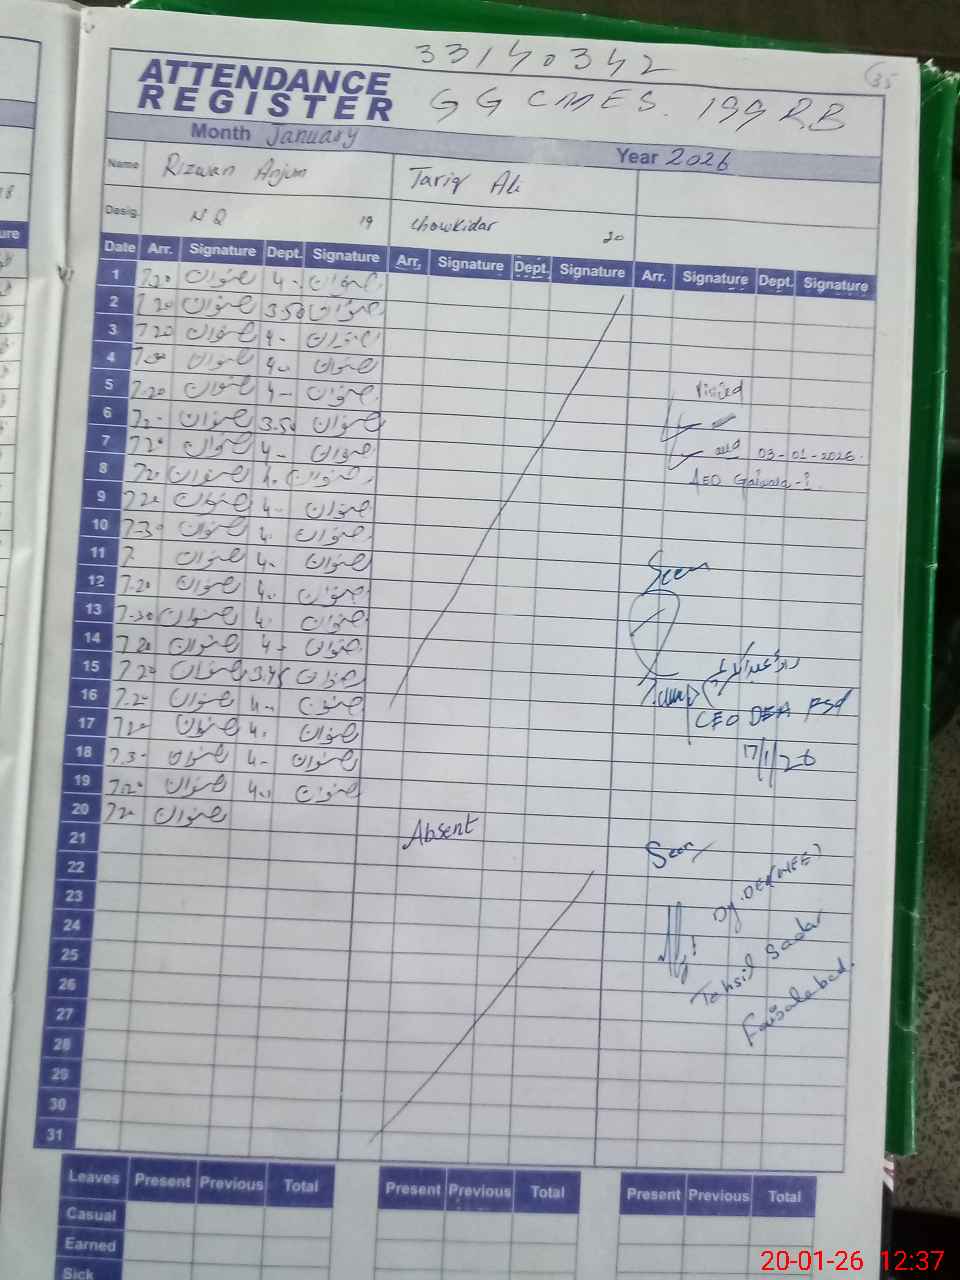 33140342
35
ATTENDANCE
REGISTER
GGCMES. 199 RB
Month January
Year 2026
Name Rizwan Anjum Tariq Ali
Desig. NQ 19 Chowkidar 20
Date Arr. Signature Dept. Signature Arr. Signature Dept. Signature Arr. Signature Dept. Signature
1 7.20 رضوان 4- رضوان
2 7.20 رضوان 3.50 رضوان
3 720 رضوان 4- رضوان
4 رضوان 4- رضوان
5 7-20 رضوان 4- رضوان
Visited
6 رضوان 3.50 رضوان
7 720 رضوان 4- رضوان
03-01-2026.
8 رضوان 4. رضوان
AEO
9 720 رضوان 4- رضوان
10 7-30 رضوان 4. رضوان
11 7 رضوان 4. رضوان
Seen
12 7-20 رضوان 4. رضوان
13 7-30 رضوان 4. رضوان
14 7.20 رضوان 4- رضوان
15 7.20 رضوان 3.45 رضوان
16 7.20 رضوان 4- رضوان
CEO DEA FSD
17 720 رضوان 4. رضوان
17/1/26
18 7.3- رضوان 4- رضوان
19 7.20 رضوان 4.. رضوان
20 720 رضوان
Absent
21
Seen
22
23
Dy. DEO(WEE)
24
25
Tehsil Sadar
26
Faisalabad.
27
28
29
30
31
Leaves Present Previous Total Present Previous Total Present Previous Total
Casual
Earned
Sick
20-01-26 12:37